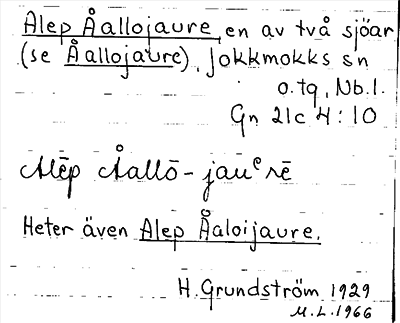 Alep Åallojaure, en av två sjöar
(se Åallojaure), Jokkmokks sn
o. tg, Nb. l.
Gn 21c 4:10
Alēp Åallō-jauᵉrē
Heter även Alep Åaloijaure.
H. Grundström 1929
M. L. 1966